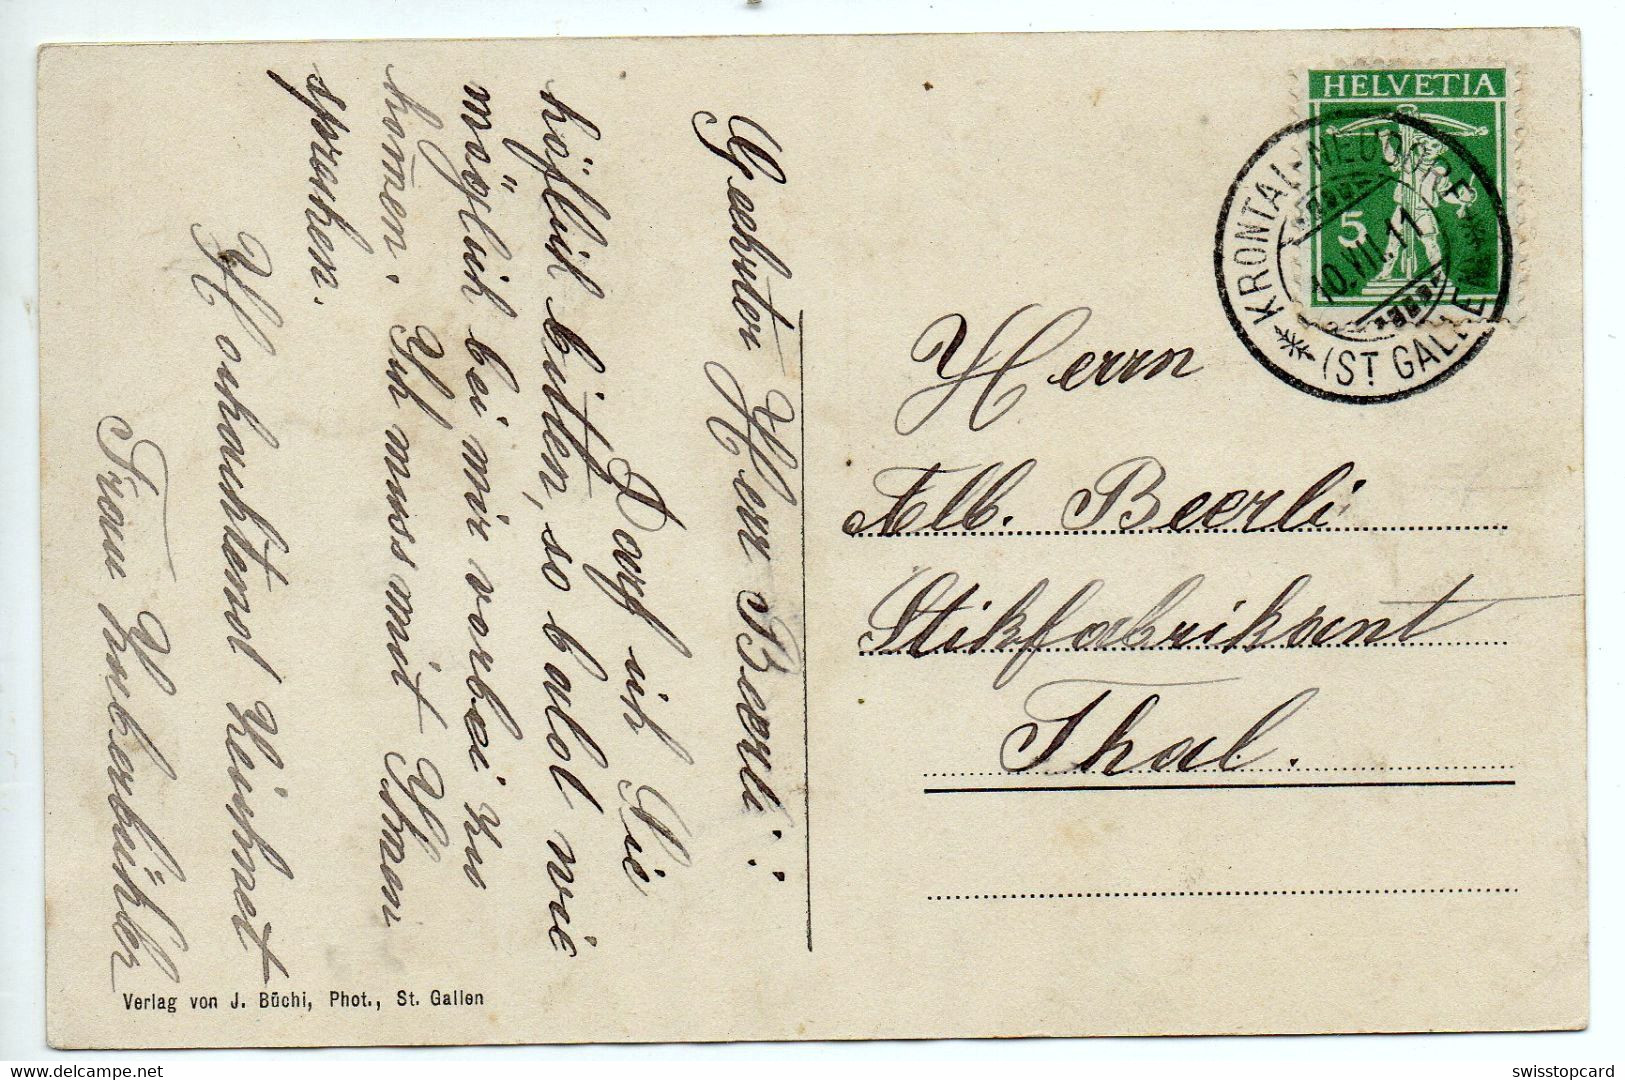 Geehrter Herr Beerli!
Darf ich Sie
höflich bitten, so bald wie
möglich bei mir vorbei zu
kom̄en. Ich muss mit Ihnen
sprechen.
Hochachtend zeichnet
Frau
HELVETIA
5
KRONTAL-NEUDORF
(ST GALLEN)
10.VIII.11
Herrn
Alb. Beerli
Stikfabrikant
Thal.
Verlag von J. Büchi, Phot., St. Gallen
swisstopcard